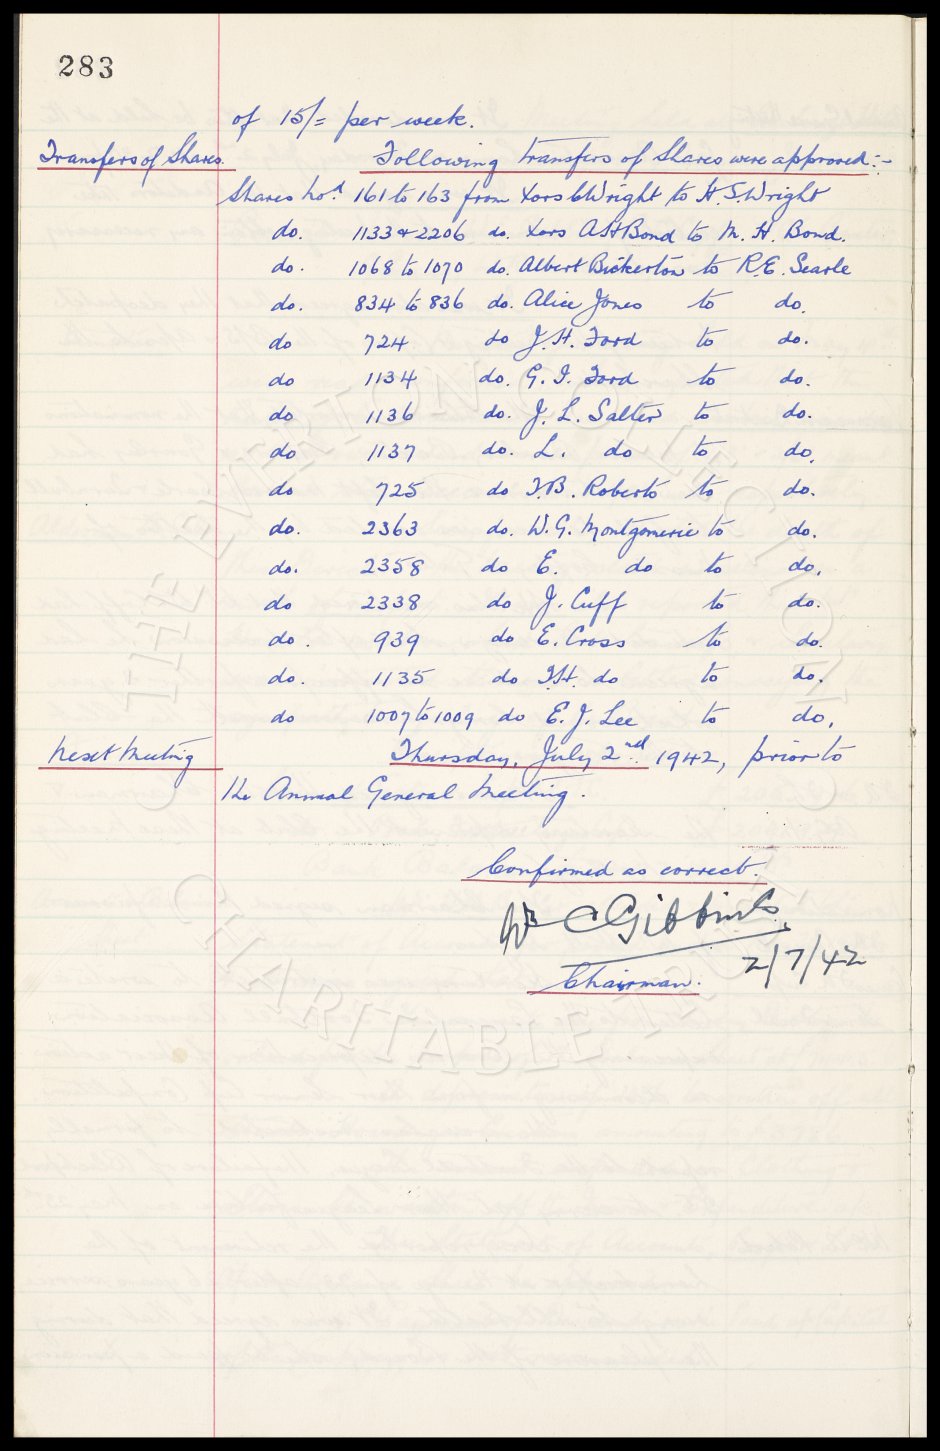 283
of 15/= per week.
Transfers of Shares. Following transfers of Shares were approved:-
Shares nos. 161 to 163 from Xors C Wright to H. S. Wright
do. 1133 & 2206 do. Xors A H Bond to M. H. Bond.
do. 1068 to 1070 do. Albert Bickerton to R.E. Searle
do. 834 to 836 do. Alice Jones to do.
do 724 do J. H. Ford to do.
do 1134 do. G. I. Ford to do.
do 1136 do. J. L. Salter to do.
do 1137 do. L. do to do.
do 725 do F.B. Roberts to do.
do. 2363 do. W. G. Montgomerie to do.
do. 2358 do E. do to do.
do 2338 do J. Cuff to do.
do. 939 do E. Cross to do.
do. 1135 do F.H. do to do.
do 1007 to 1009 do E. J. Lee to do.
Next Meeting Thursday, July 2nd. 1942, prior to
the Annual General Meeting.
Confirmed as correct.
Wm C Gibbins
2/7/42
Chairman.
THE EVERTON COLLECTION
CHARITABLE TRUST